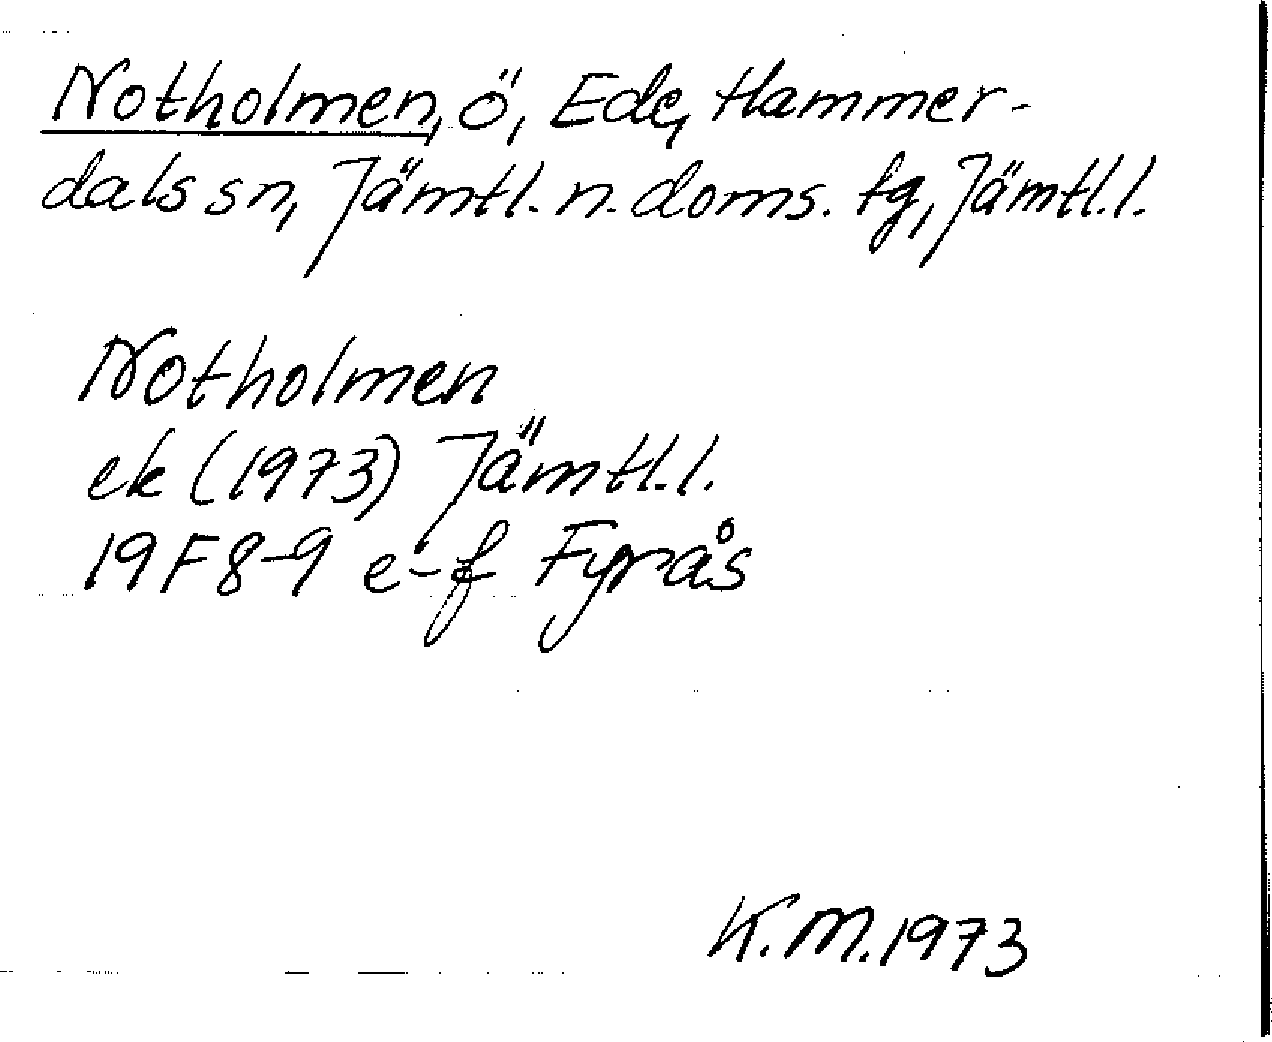 Notholmen, ö, Ede, Hammer-
dals sn, Jämtl. n. doms. tg, Jämtl.l.
Notholmen
ek (1973) Jämtl.l.
19F 8-9 e-f Fyrås
K.M. 1973